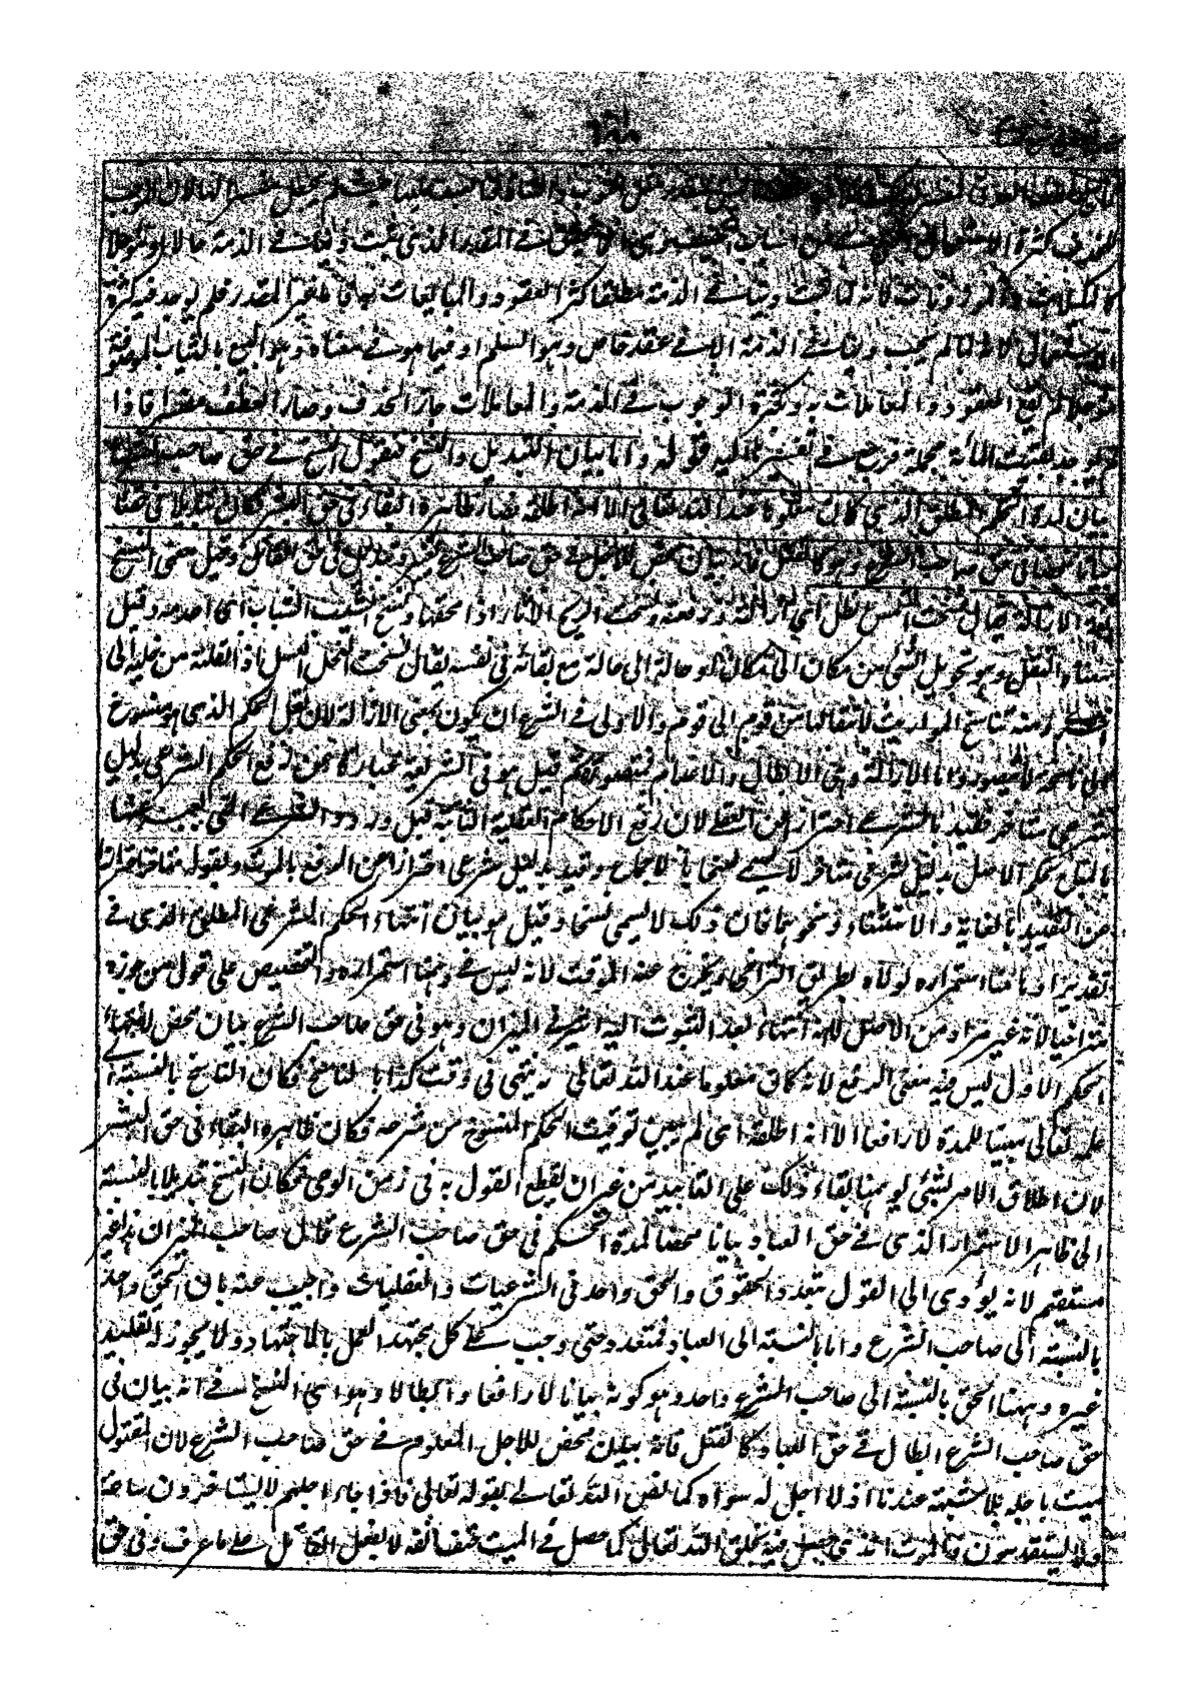 كثرة الاستعمال في القدر الذي يثبت دينا في الذمة حالا ومؤجلا
كالمكيلات والموزونات لانه لما ثبت دينا في الذمة مطلقا كثر العقود والمبايعات فلم يوجد فيه كثرة
الاستعمال لانها لما لم يجب دينا في الذمة الا في عقد خاص وهو السلم او فيما هو في معناه وهو البيع بالثياب الموصوفة
مؤجلا لم العقود والمعاملات به وكثرة الوجوب في الذمة والمعاملات جاز الحذف وصار العطف مفسرا فاذا
لم يوجد بقيت المائة مجملة فرجع في تفسيره اليه قوله واما بيان التبديل والنسخ فنقول النسخ في حق صاحب الشرع
بيان لمدة الحكم المطلق الذي كان معلوما عند الله تعالى الا انه اطلقه فصار ظاهره البقاء في حق البشر فكان تبديلا في حقنا
بيانا محضا في حق صاحب الشرع وهو كالقتل فانه بيان محض للاجل في حق صاحب الشرع وتبديل في حق القاتل وقيل معنى النسخ
لغة الازالة يقال نسخت الشمس الظل اي ازالته ورفعته ونسخت الريح الآثار اذا محقتها ونسخ الشيب الشباب اي اعدمه وقيل
معناه النقل وهو تحويل الشيء من مكان الى مكان او حالة الى حالة مع بقائه في نفسه يقال نسخت النحل العسل اذا نقلته من خلية الى
اخرى ومنه تناسخ المواريث لانتقالها من قوم الى قوم والاولى في الشرع ان يكون بمعنى الازالة لان نقل الحكم الذي هو منسوخ
الى ناسخه لا يتصور واما الازالة وهي الابطال والاعدام فمتصور ثم قيل هو في الشريعة عبارة عن رفع الحكم الشرعي بدليل
شرعي متأخر فقيد بالشرعي احتراز عن العقلي لان رفع الاحكام العقلية الثابتة قبل ورود الشرع
حكم الاصل بدليل شرعي متأخر لا يسمى نسخا بالاجماع وقيد بدليل شرعي احترازا عن الرفع بالموت وبقوله متأخر احترازا
عن التقييد بالغاية والاستثناء ونحوهما فان ذلك لا يسمى نسخا وقيل هو بيان انتهاء الحكم الشرعي المطلق الذي في
تقدير اوهامنا استمراره لولاه بطريق التراخي ويخرج عنه الموقت لانه ليس في وهمنا استمراره والتخصيص على قول من جوزه
متراخيا لانه غير مراد من الاصل لانه انتهاء بعد الثبوت اليه اشير في الميزان وهو في حق صاحب الشرع بيان محض لانتهاء
الحكم الاول ليس فيه معنى الرفع لانه كان معلوما عند الله تعالى انه ينتهي في وقت كذا بالناسخ فكان الناسخ بالنسبة الى
علمه تعالى مبينا للمدة لا رافعا الا انه اطلقه اي لم يبين توقيت الحكم المنسوخ حين شرعه فكان ظاهره البقاء في حق البشر
لان اطلاق الامر بشيء يوهمنا بقاء ذلك على التأبيد من غير ان نقطع القول به في زمن الوحي فكان النسخ تبديلا بالنسبة
الى ظاهر الاستمرار الذي في حق العباد بيانا محضا لمدة الحكم في حق صاحب الشرع قال صاحب الميزان هذا غير
مستقيم لانه يؤدي الى القول بتعدد الحقوق والحق واحد في الشرعيات والعقليات واجيب عنه بان الحق واحد
بالنسبة الى صاحب الشرع واما بالنسبة الى العباد فمتعدد حتى وجب على كل مجتهد العمل بالاجتهاد ولا يجوز له تقليد
غيره وههنا الحق بالنسبة الى صاحب الشرع واحد وهو كونه بيانا لا رافعا وابطالا وهو اي النسخ في انه بيان في
حق صاحب الشرع ابطال في حق العباد كالقتل فانه بيان محض للاجل المعلوم في حق صاحب الشرع لان المقتول
ميت باجله بلا شبهة عندنا اذ لا اجل له سواه كما نص الله تعالى بقوله تعالى فاذا جاء اجلهم لا يستأخرون ساعة
ولا يستقدمون فالموت الذي حصل فيه بخلق الله تعالى كما حصل في الميت حتف انفه لا بفعل القاتل على ما عرف وفي حق